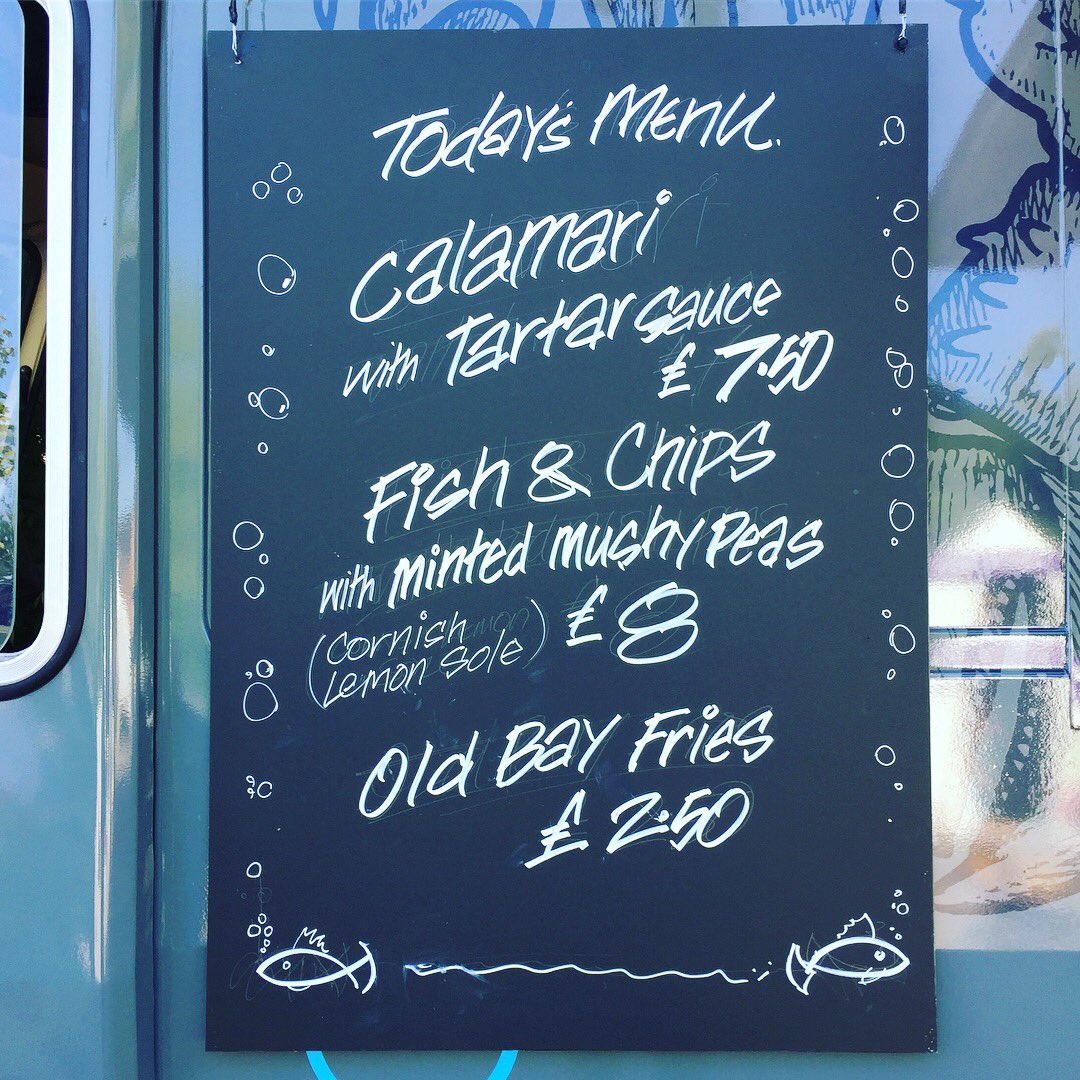 Today's Menu.
Calamari
with Tartar Sauce
£ 7.50
Fish & Chips
with minted mushy Peas
(Cornish Lemon Sole) £ 8
Old Bay Fries
£ 2.50